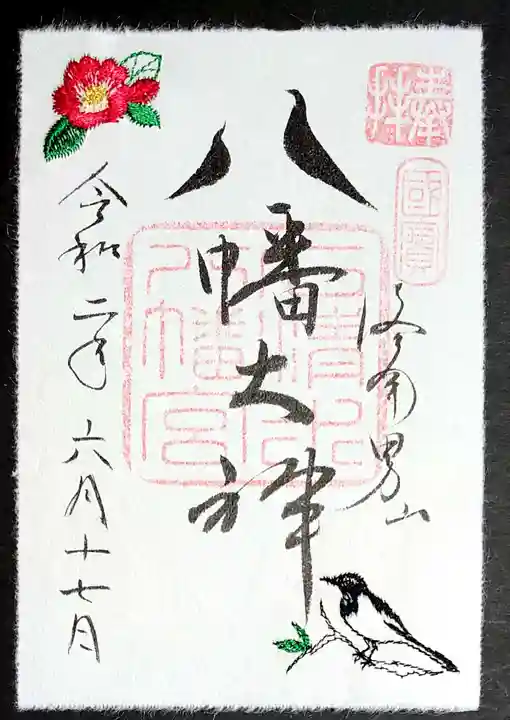 奉拝
國寶
洛南男山
八幡大神
石清水八幡宮
令和二年六月十七日